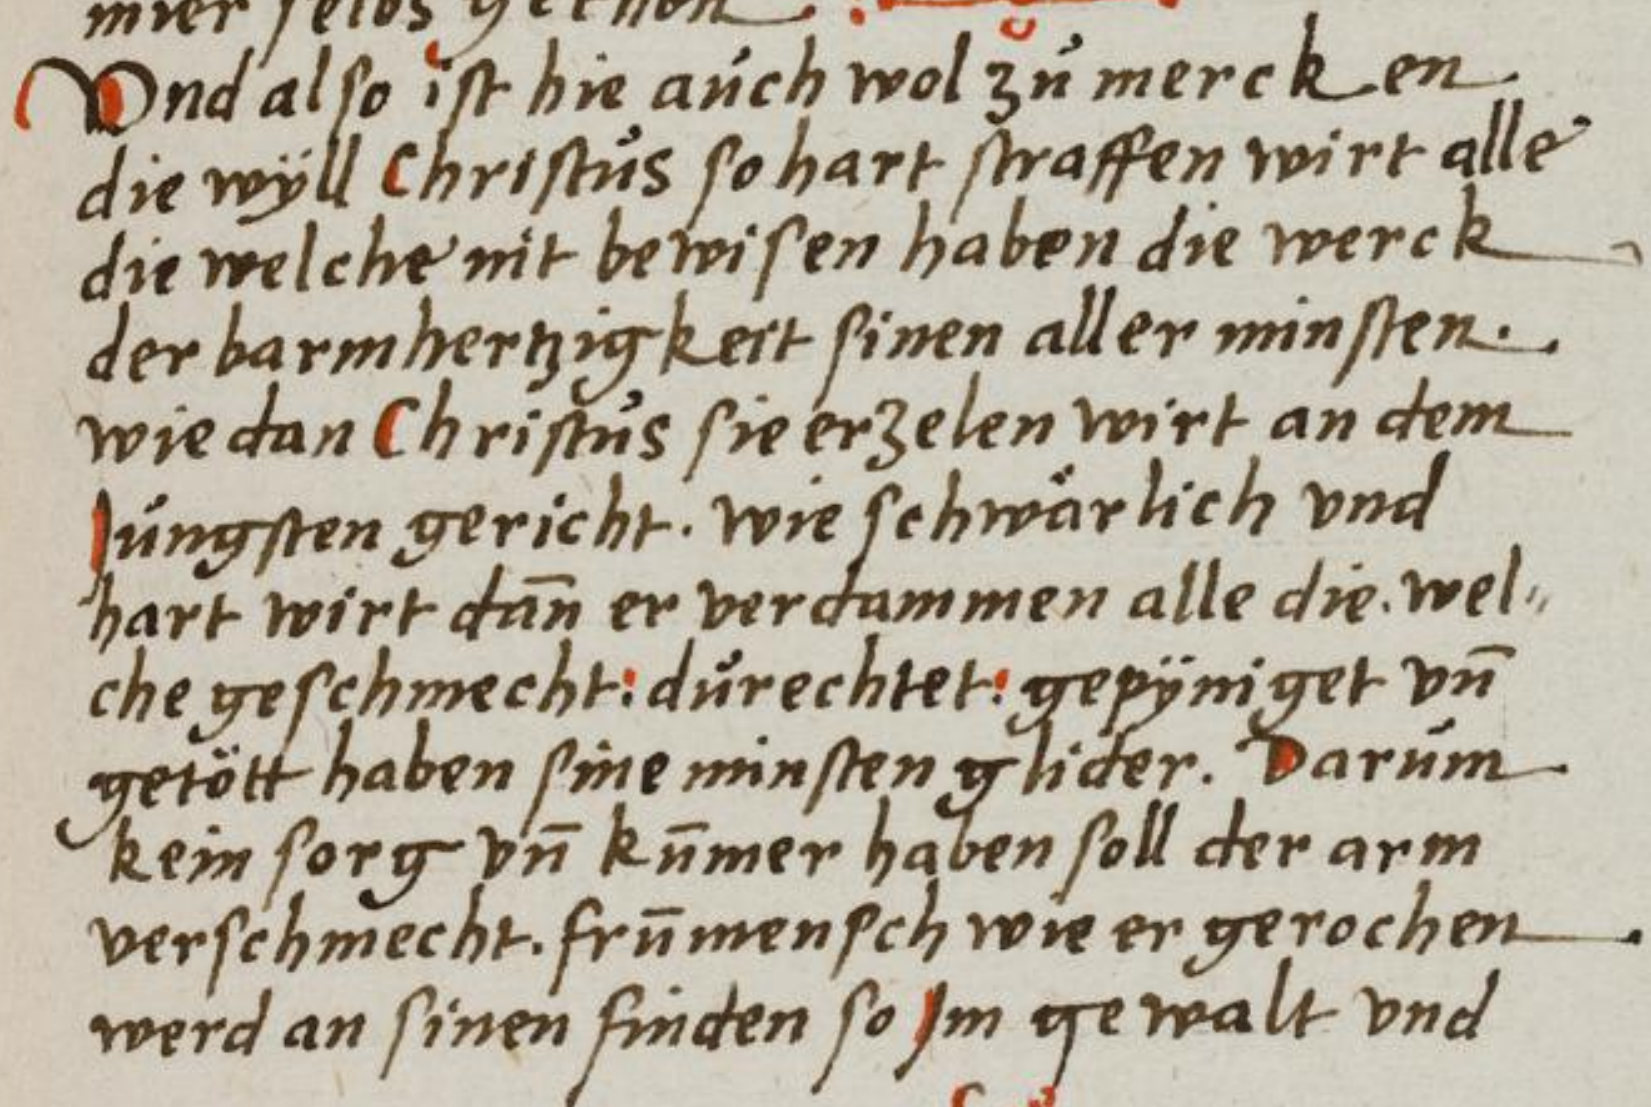 mier selbs gethon.
Vnd also ist hie auch wol zů mercken.
die wÿll Christůs so hart straffen wirt alle
die welche nit bewisen haben die werck
der barmhertzigkeit sinen aller minsten.
wie dan Christůs sie erzelen wirt an dem
Jungsten gericht. wie schwärlich vnd
hart wirt dañ er verdammen alle die. wel„
che geschmecht: důrechtet: gepÿniget vn̄
getött haben sine minsten glider. Darum
kein sorg vn̄ kūmer haben soll der arm
verschmecht. frūmensch wie er gerochen
werd an sinen finden so Jm gewalt vnd